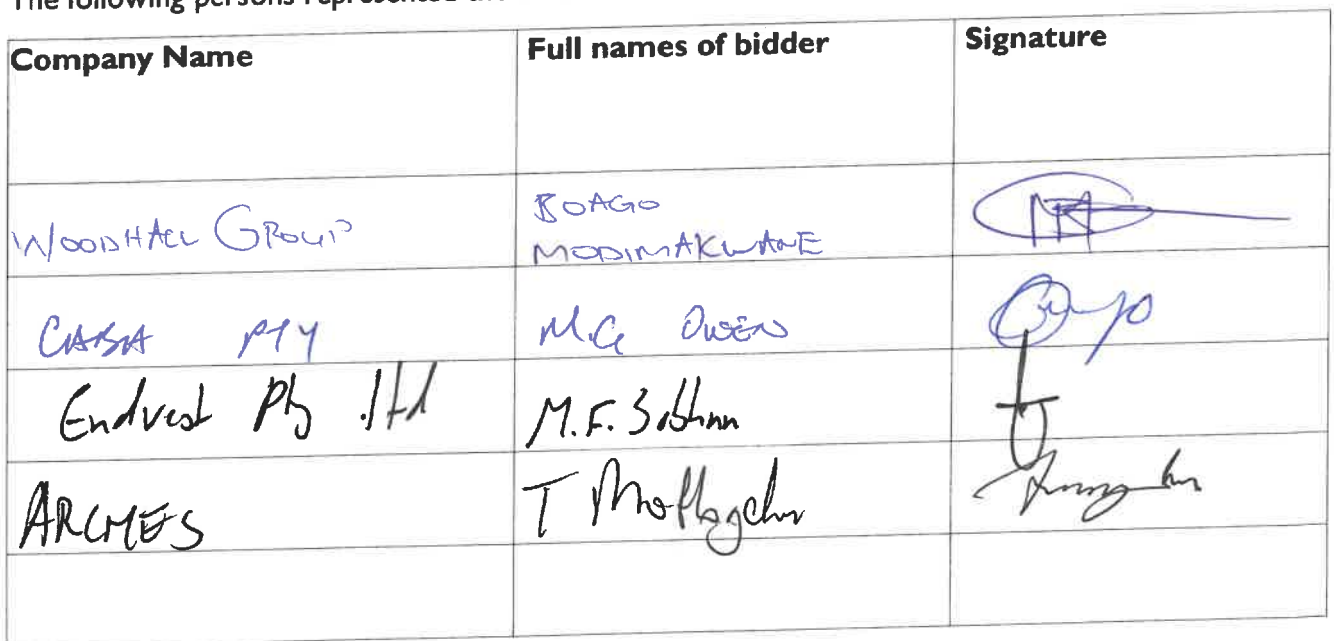 The following persons represented the
Company Name Full names of bidder Signature
WOODHALL GROUP BOAGO
MODIMAKWANE
CABA PTY M.G OWEN
Endvest Pty .ltd M.F.
ARCHES T